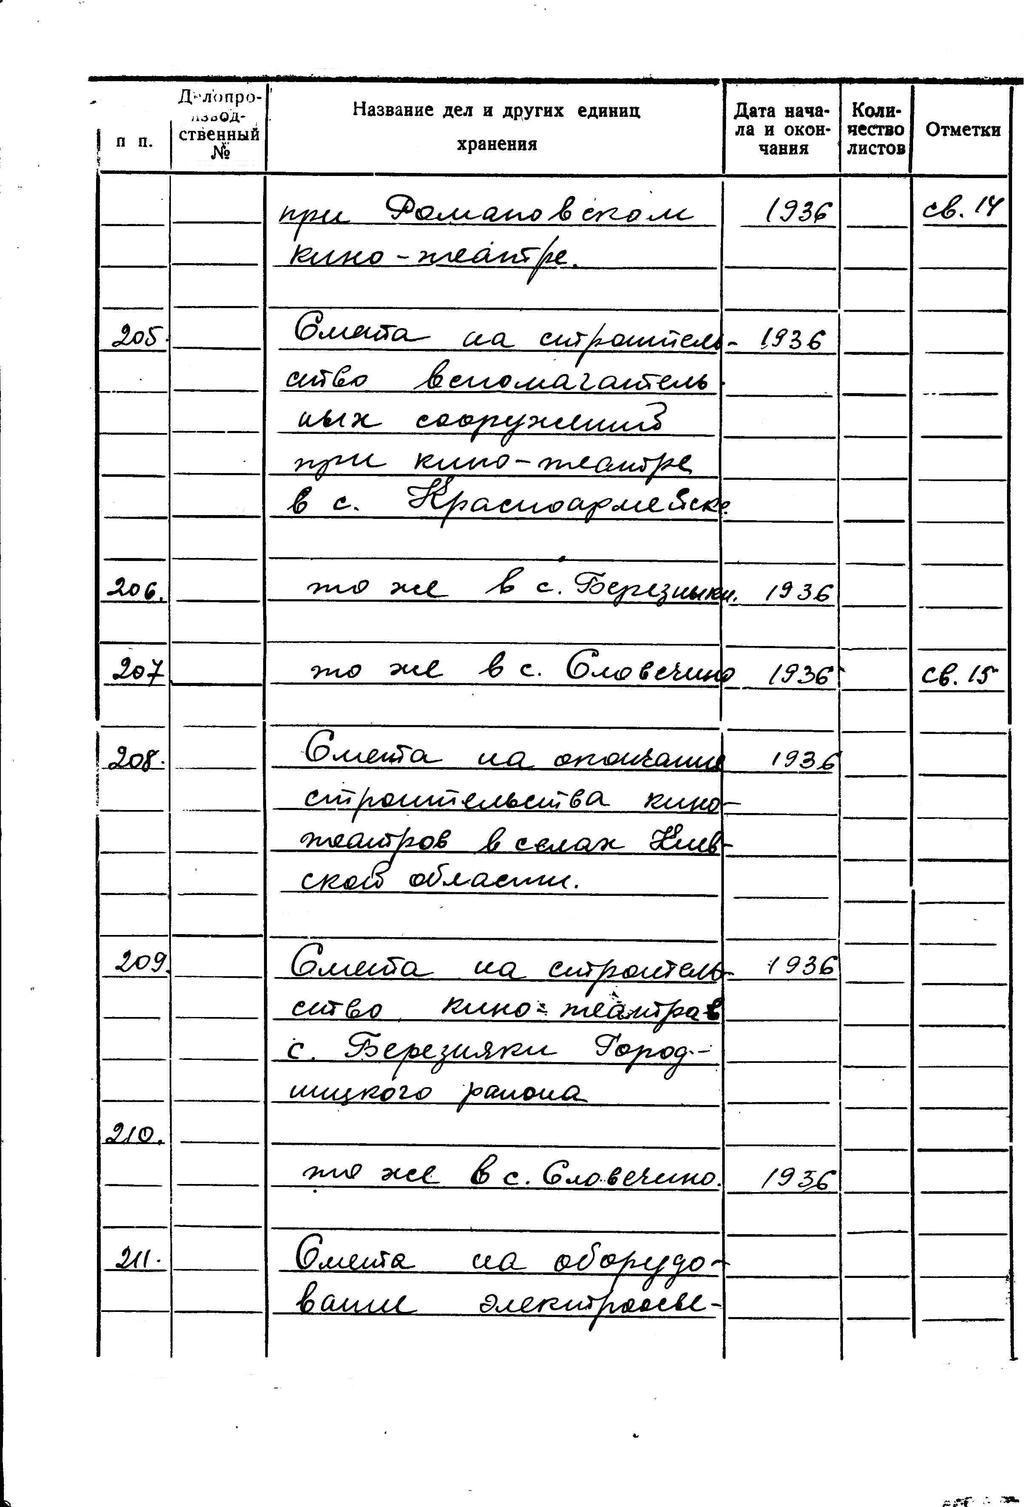 п п.
Делопро-
извод-
ственный
№
Название дел и других единиц
хранения
Дата нача-
ла и окон-
чания
Коли-
чество
листов
Отметки
при Романовском 1936 св. 14
кино-театре.
205. Смета на строитель- 1936
ство вспомагатель
ных сооружений
при кино-театре
в с. Красноармейске
206. то же в с. Березныки. 1936
207 то же в с. Словечино 1936 св. 15
208. Смета на окончание 1936
строительства кино-
театров в селах Киев-
ской области.
209. Смета на строитель- 1936
ство кино-театра в
с. Березняки Город-
ницкого района
210.
то же в с. Словечино. 1936
211. Смета на оборудо-
вание электроосве-